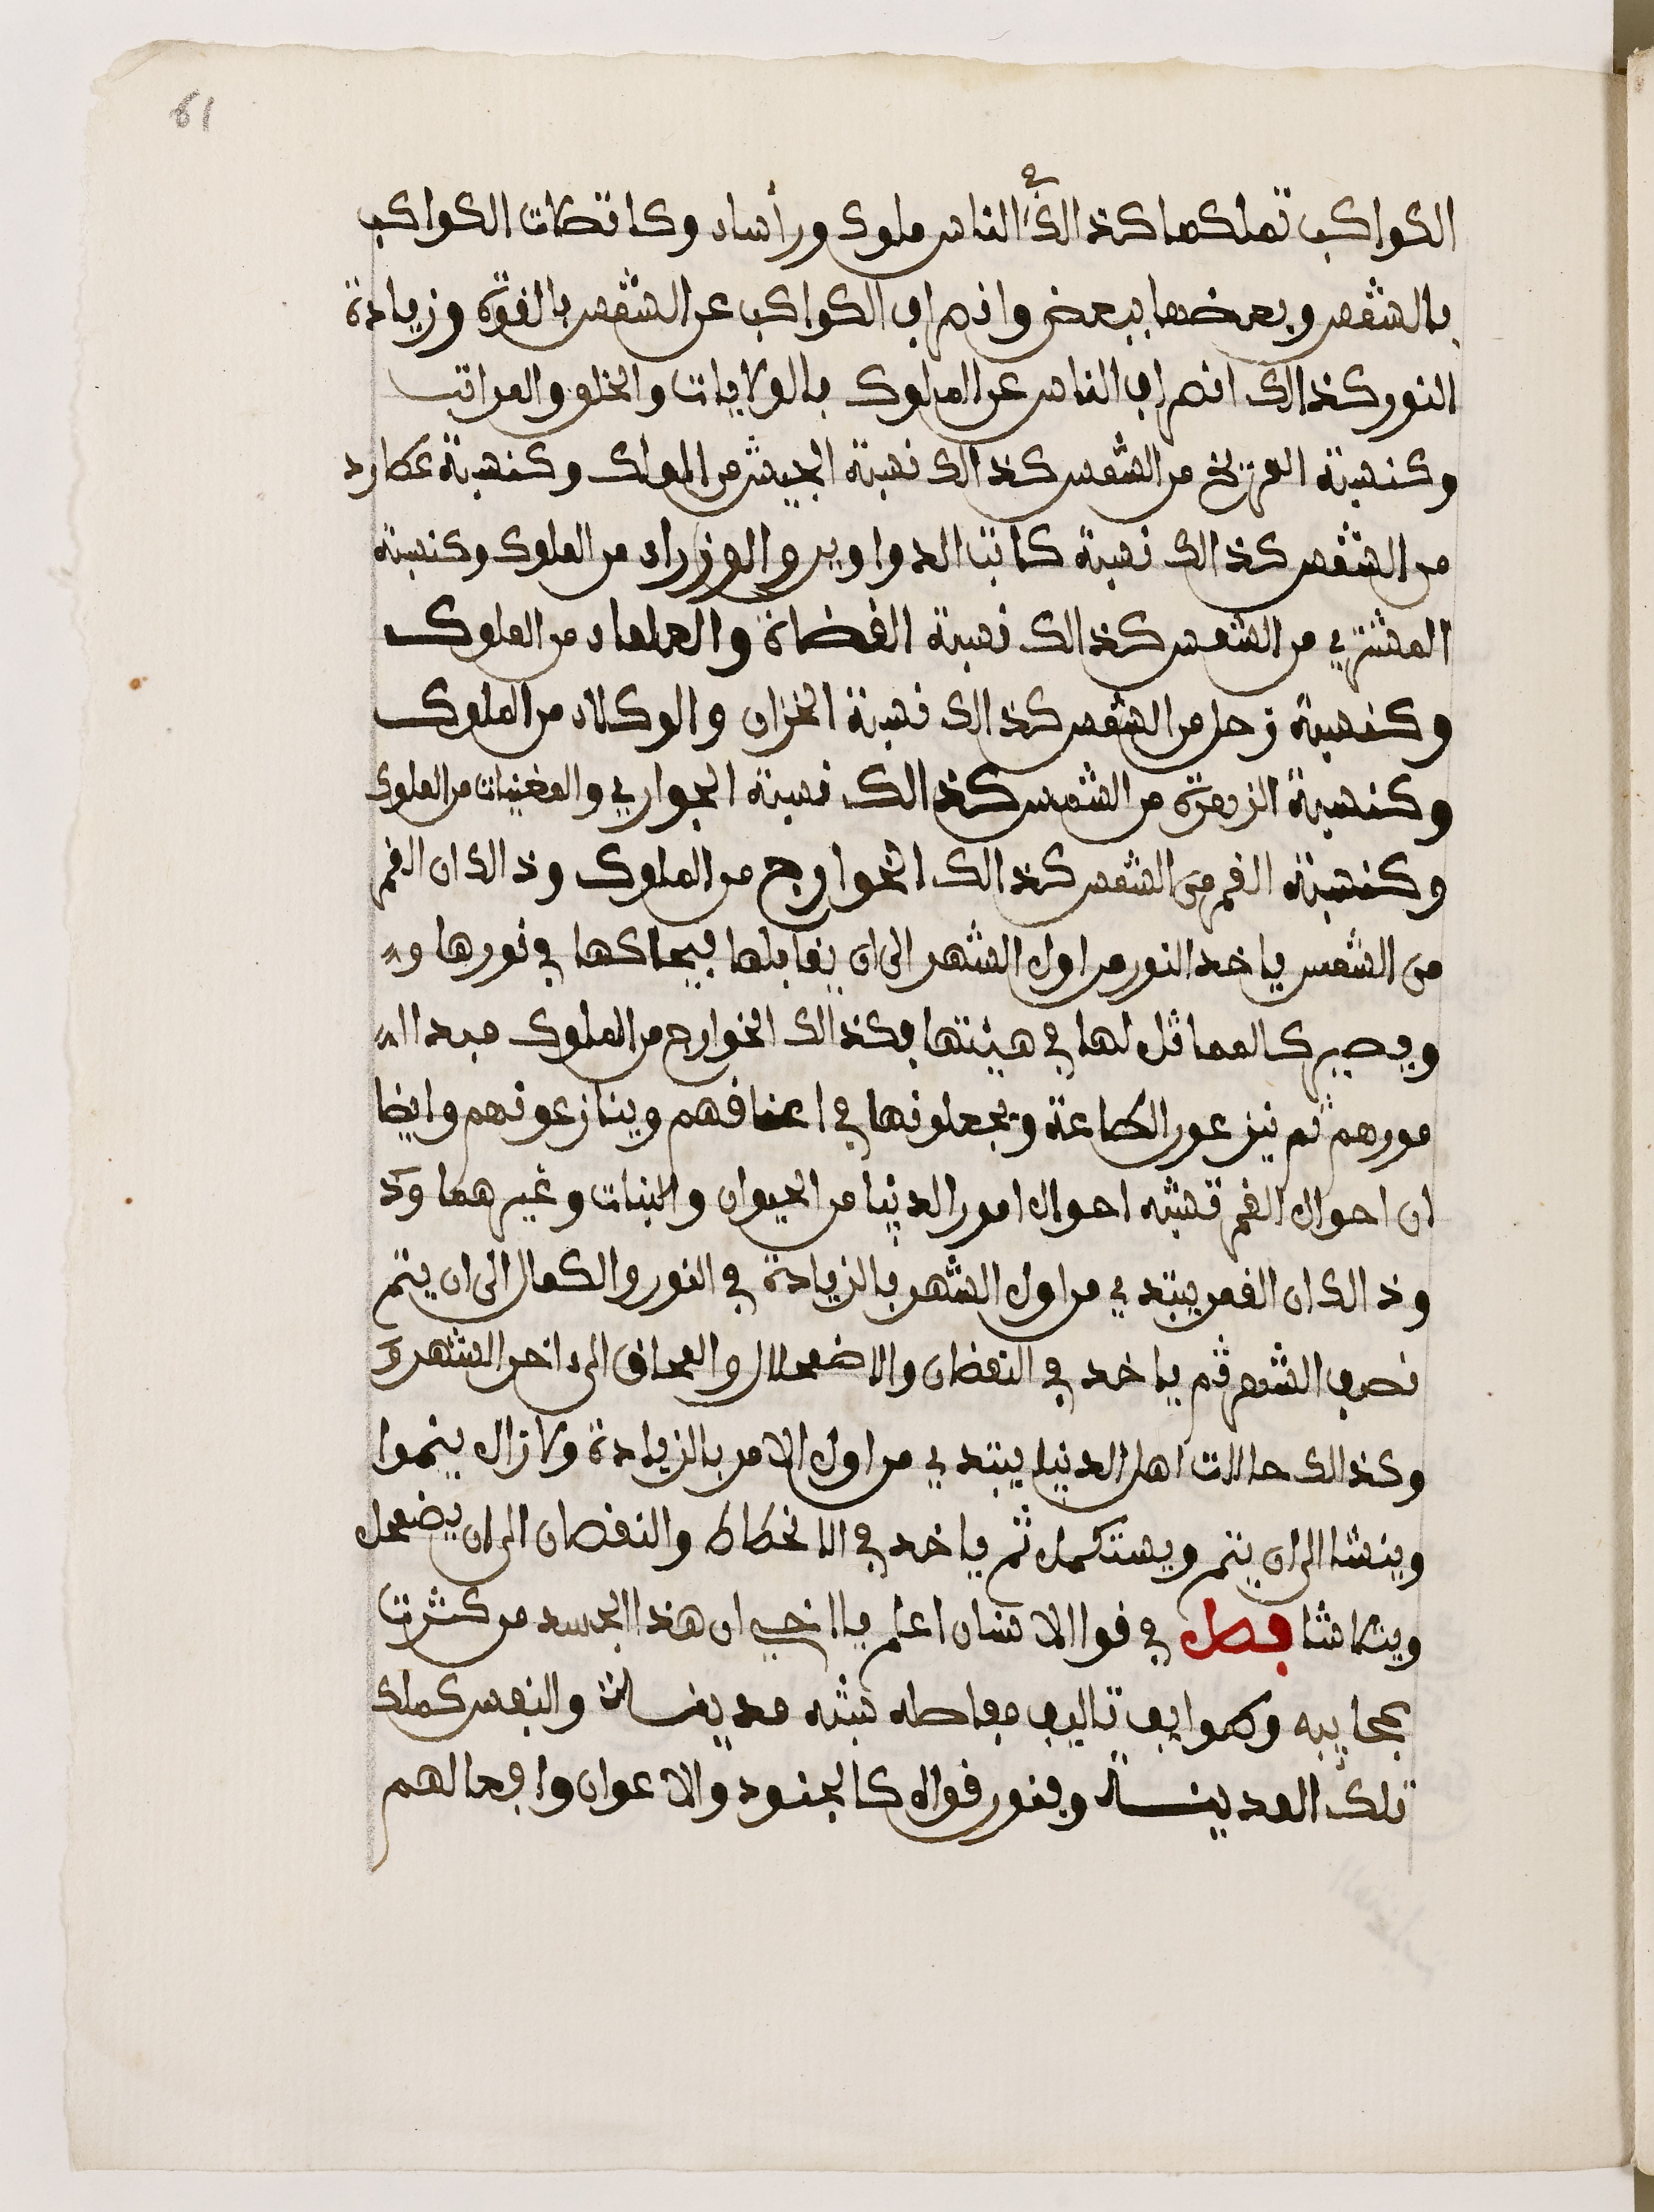 61
الكواكب تملكها كذالك في الناس ملوك ورأساء وكاتصلات الكواكب
بالشمس وبعضها ببعض وانصراف الكواكب عن الشمس بالقوة وزيادة
النور كذالك انصراف الناس عن الملوك بالولايات والخلع والمراتب
وكنسبة المريخ من الشمس كذالك نسبة الجيش من الملوك وكنسبة عطارد
من الشمس كذالك نسبة كاتب الدواوين والوزراء من الملوك وكنسبة
المشتري من الشمس كذالك نسبة القضاة والعلماء من الملوك
وكنسبة زحل من الشمس كذالك نسبة الخزان والوكلاء من الملوك
وكنسبة الزهرة من الشمس كذالك نسبة الجواري والمغنيات من الملوك
وكنسبة القمر من الشمس كذالك الخوارج من الملوك وذالك ان القمر
من الشمس ياخد النور من اول الشهر الى ان يقابلها فيحاكها في نورها و
ويصير كالمماثل لها في هيئتها فكذالك الخوارج من الملوك مبدا ا
مورهم ثم ينزعون الطاعة ويجعلونها في اعناقهم وينازعونهم وايضا
ان احوال القمر تشبه احوال امور الدنيا من الحيوان والنبات وغيرهما وذ
وذالك ان القمر يبتدي من اول الشهر بالزيادة في النور والكمال الى ان يتم
نصف الشهر ثم ياخد في النقضان والاضمحلال والمحاق الى ءاخر الشهر و
وكذالك حالات اهل الدنيا يبتدي من اول الامر بالزيادة ولا زال ينموا
وينشا الى ان يتم ويستكمل ثم ياخد في الانحطاط والنقصان الى ان يضمحل
ويتلاشا فصل في قوا الانسان اعلم يا اخي ان هذا الجسد من كثرت
عجايبه وطوايف تاليف مفاصله شبه مدينة والنفس كملك
تلك المدينة وفنور قواه كالجنود والاعوان وافعالهم